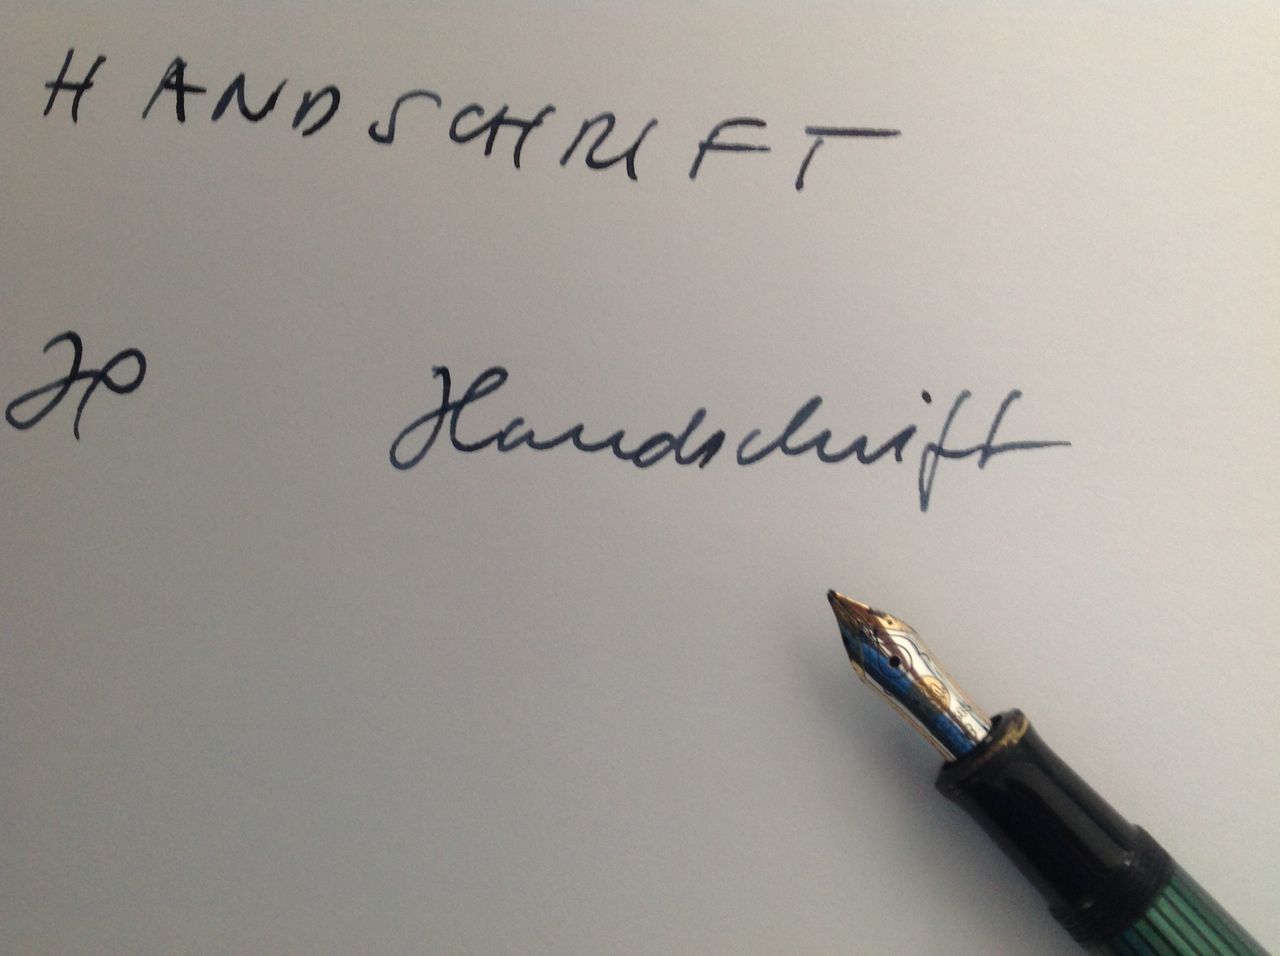 HANDSCHRIFT
Handschrift